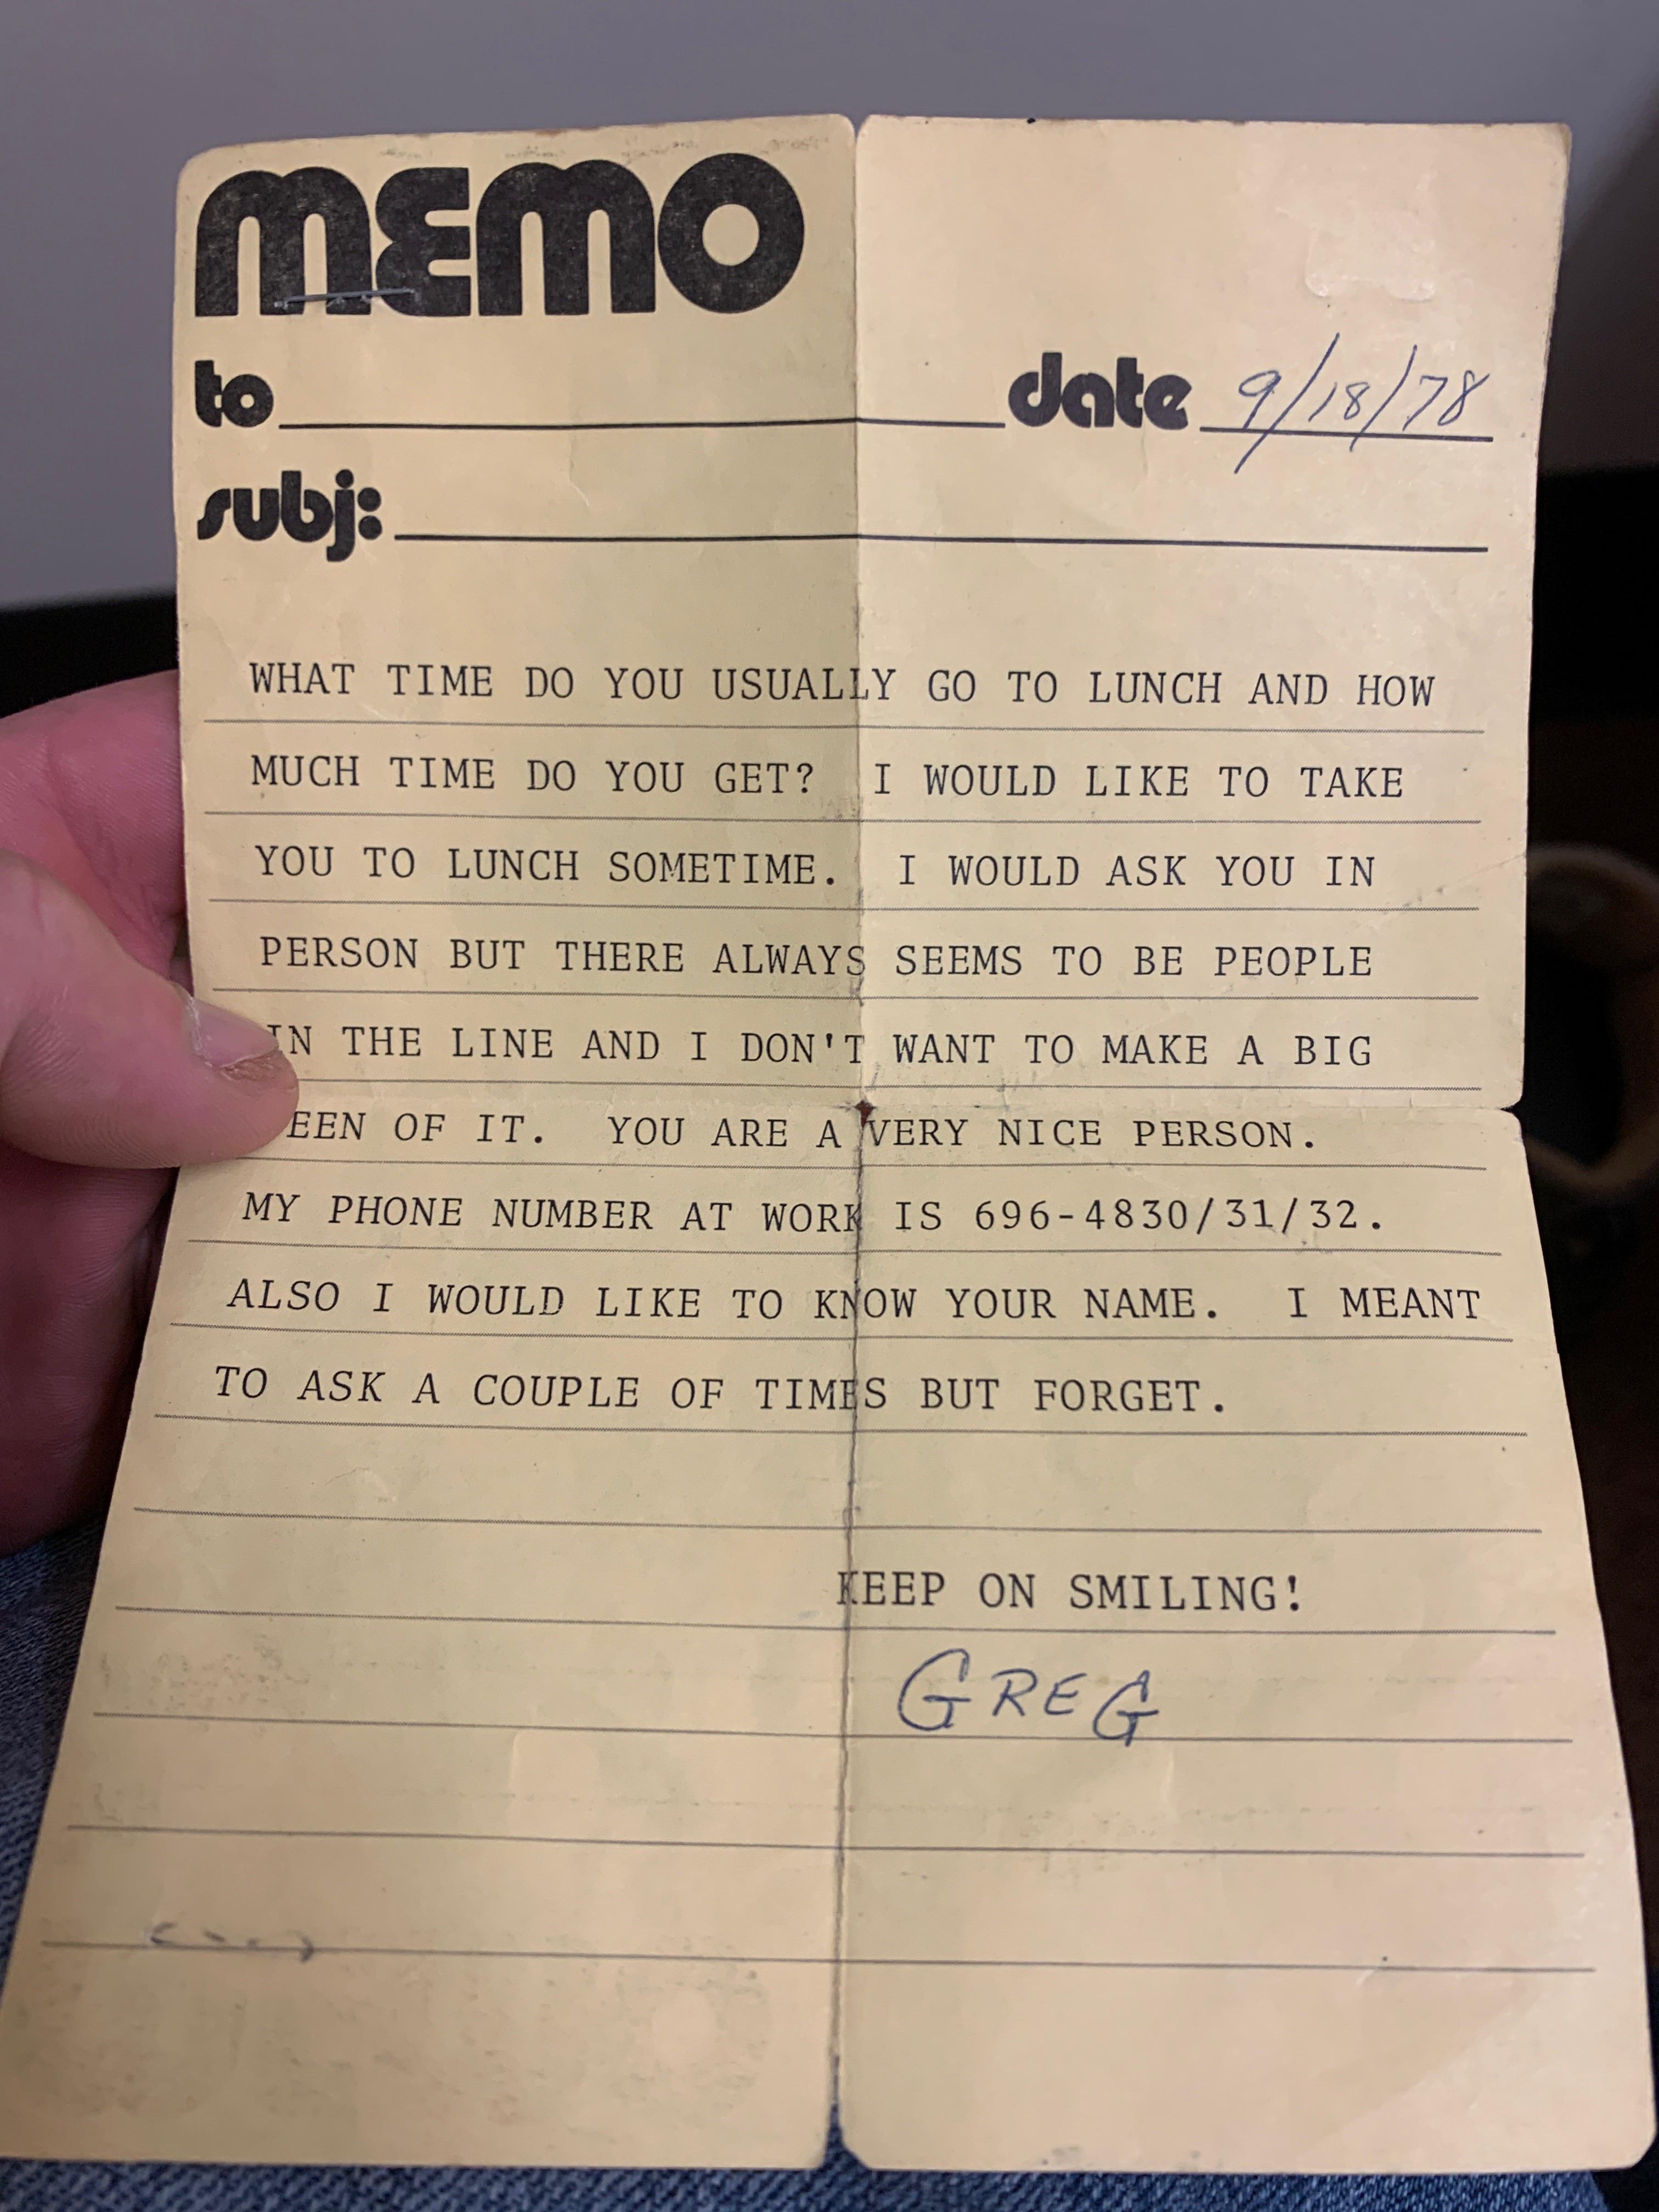 MEMO
to date 9/18/78
subj:
WHAT TIME DO YOU USUALLY GO TO LUNCH AND HOW
MUCH TIME DO YOU GET? I WOULD LIKE TO TAKE
YOU TO LUNCH SOMETIME. I WOULD ASK YOU IN
PERSON BUT THERE ALWAYS SEEMS TO BE PEOPLE
IN THE LINE AND I DON'T WANT TO MAKE A BIG
EEN OF IT. YOU ARE A VERY NICE PERSON.
MY PHONE NUMBER AT WORK IS 696-4830/31/32.
ALSO I WOULD LIKE TO KNOW YOUR NAME. I MEANT
TO ASK A COUPLE OF TIMES BUT FORGET.
KEEP ON SMILING!
GREG